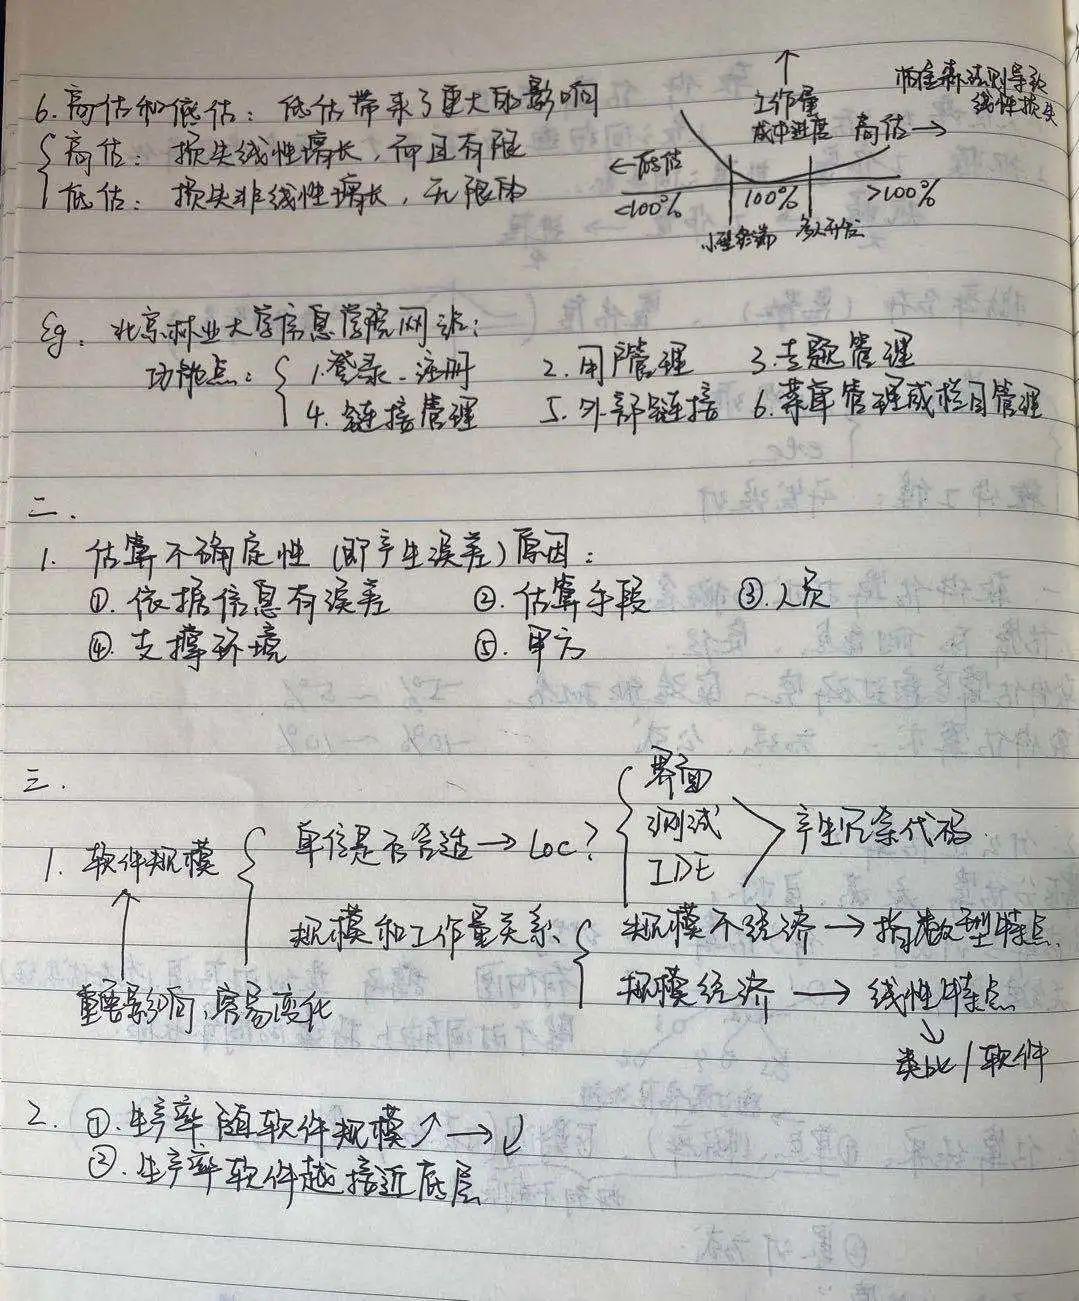 6. 高估和低估：低估带来了更大的影响
高估：损失线性增长，而且有限
低估：损失非线性增长，无限的
工作量
成本进度
帕金森法则导致
线性损失
高估→
←低估
<100% 100% >100%
多人开发
Eg. 北京林业大学信息学院网站：
功能点：1.登录、注册 2.用户管理 3.专题管理
4.链接管理 5.外部链接 6.菜单管理或栏目管理
二.
1. 估算不确定性（即产生误差）原因：
①.依据信息有误差 ②.估算手段 ③.人员
④.支撑环境 ⑤.甲方
三.
1. 软件规模
单位是否合适→Loc?
界面
测试
IDE
产生冗余代码
规模和工作量关系
规模不经济→指数型特点
规模经济→线性特点
类比/软件
重要影响，容易变化
2. ①.生产率随软件规模↗→↙
②.生产率软件越接近底层